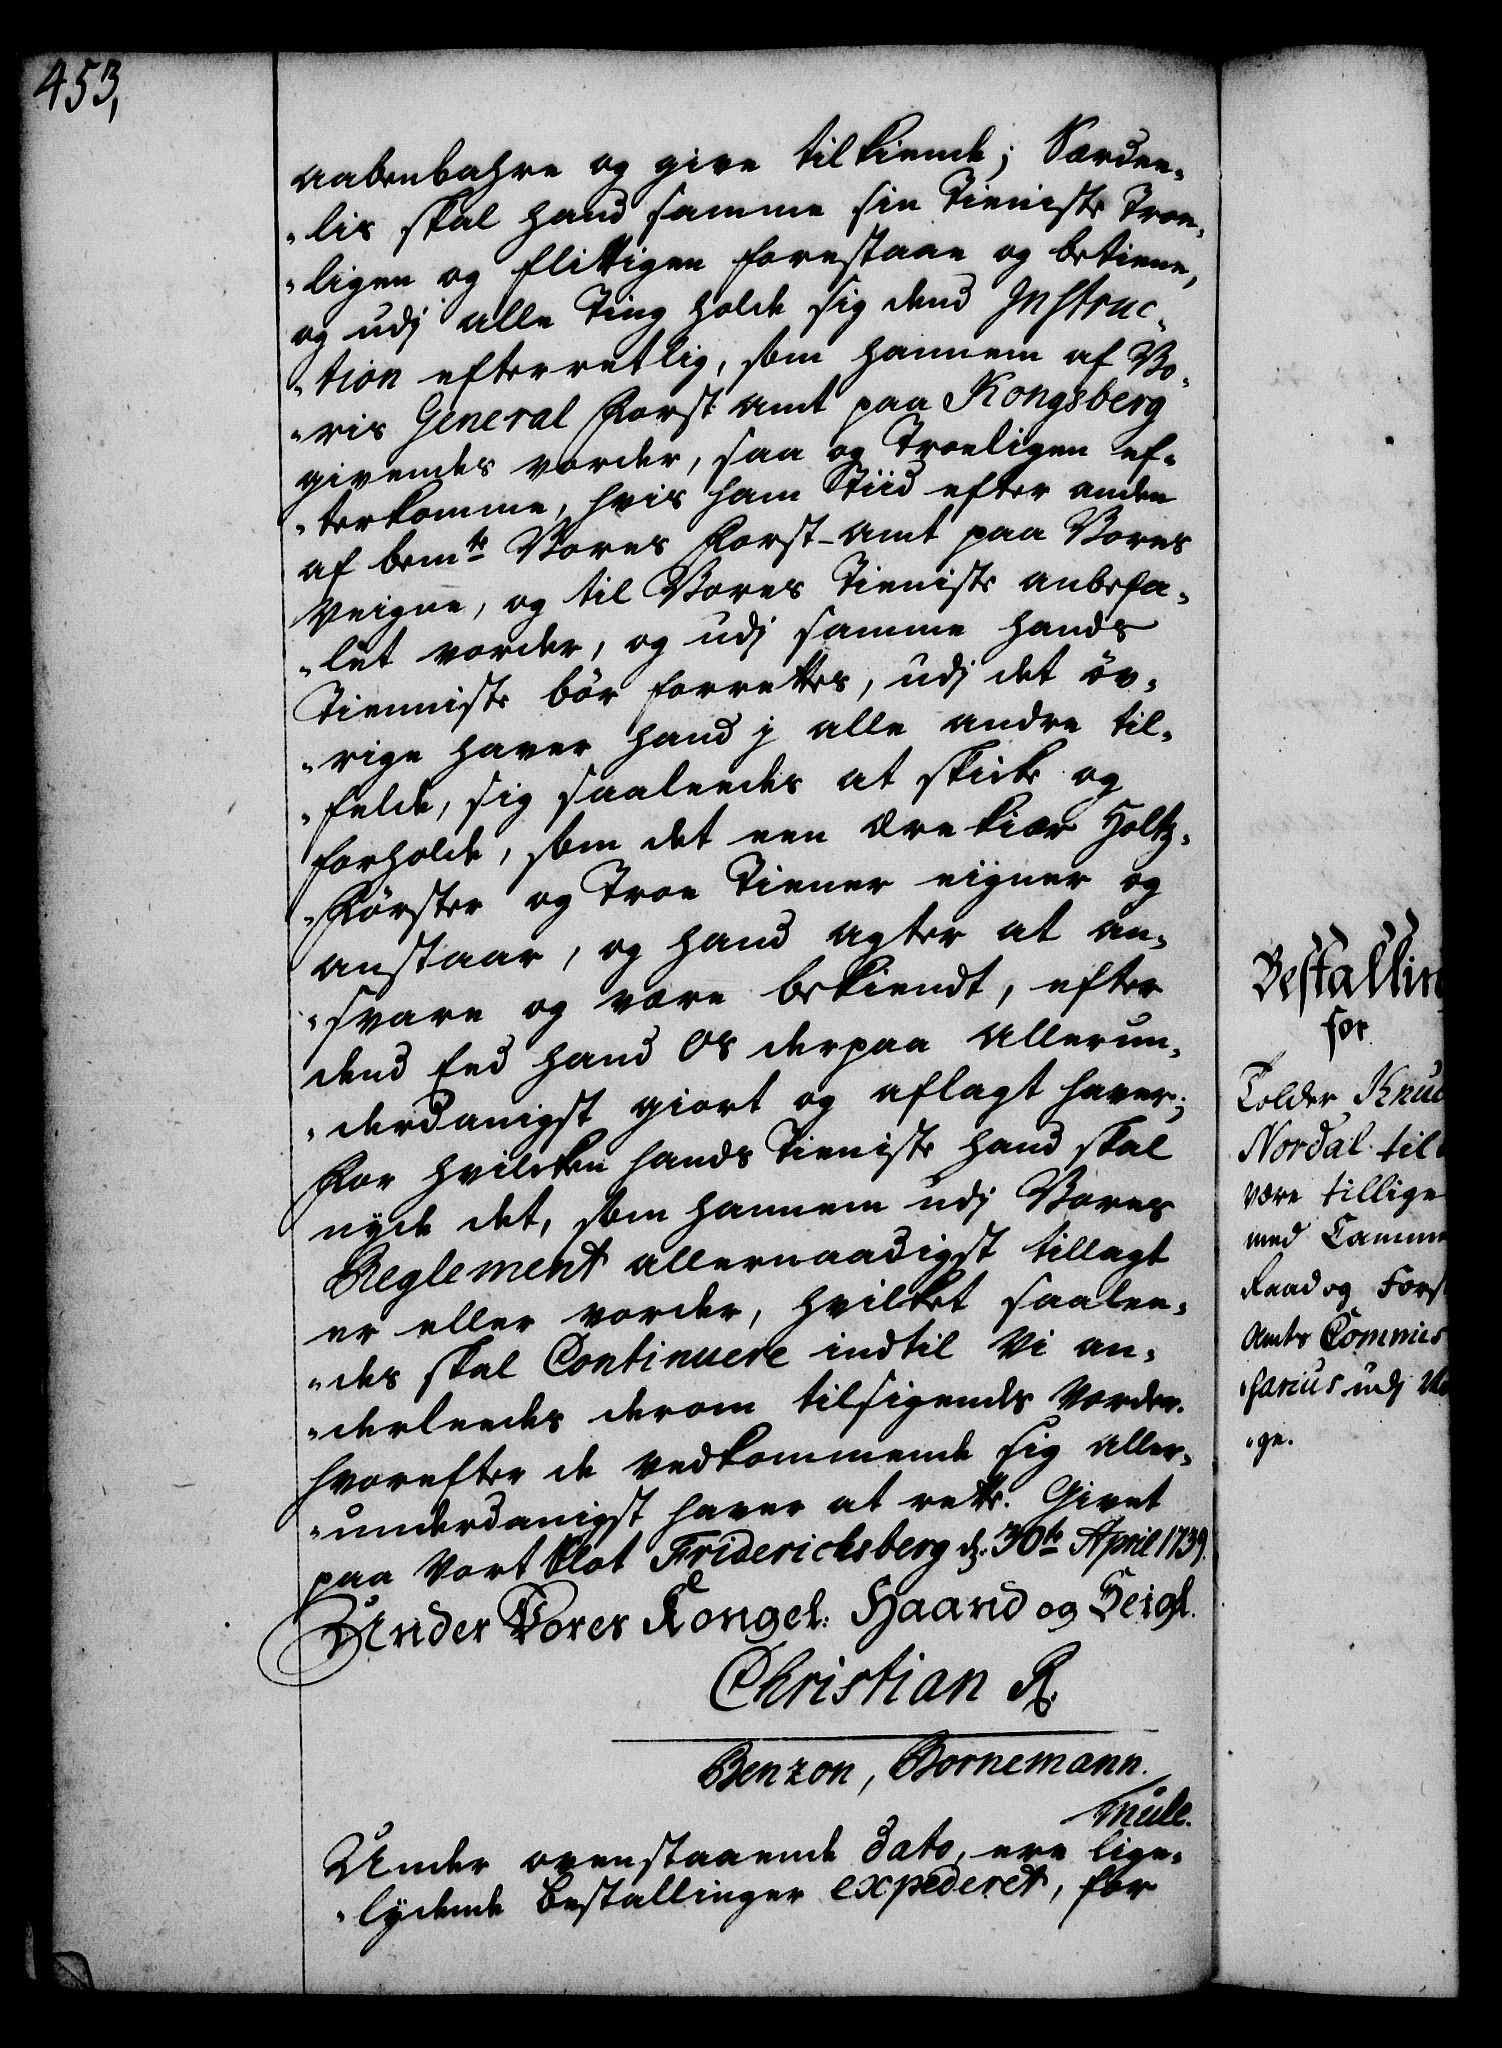 453,
aabenbahre og give tilkiende; Særdee-
-lis skal hand samme sin Tieniste Troe-
-ligen og flittigen forestaae og betiene,
og udj alle Ting holde sig dend Instruc-
-tion efterretlig, som hannem af Vo-
-ris General Forst amt paa Kongsberg
givendes vorder, saa og Troeligen ef-
-terkomme, hvis ham Tiid efter anden
af bemte Vores Forst-amt paa Vores
Veigne, og til Vores Tieniste anbefa-
-let vorder, og udj samme hands
Tienniste bör forrettes, udj det öv-
-rige haver hand j alle andre til-
-felde, sig saaleedes at skicke og
forholde, som det een ærekiær Holtz-
-Förster og Troe Tiener eigner og
anstaar, og hand agter at an-
-svare og være bekiendt, efter
dend Eed hand Os derpaa allerun-
-derdanigst giort og aflagt haver;
For hvilcken hands Tieniste hand skal
nyde det, som hannem udj Vores
Reglement allernaadigst tillagt
er eller vorder, hvilket saalee-
-des skal Continuere indtil Vi an-
-derleedes derom tilsigendes Vorder.
hvorefter de vedkommende sig aller-
-underdanigst haver at rette. Givet
paa Vort Slot Friderichsberg d. 30te April 1739.
Under Vores Kongel: Haand og Seigl.
Christian R.
Benzon, Bornemann.
Mule.
Under ovenstaaende Dato, ere lige-
-lydende Bestallinger expederet, for
Bestallin
for
Tolder Knud
Nordal til
være tillige
med Camme
Raad og Forst
Amts Commis
-sarius udj
-ge.